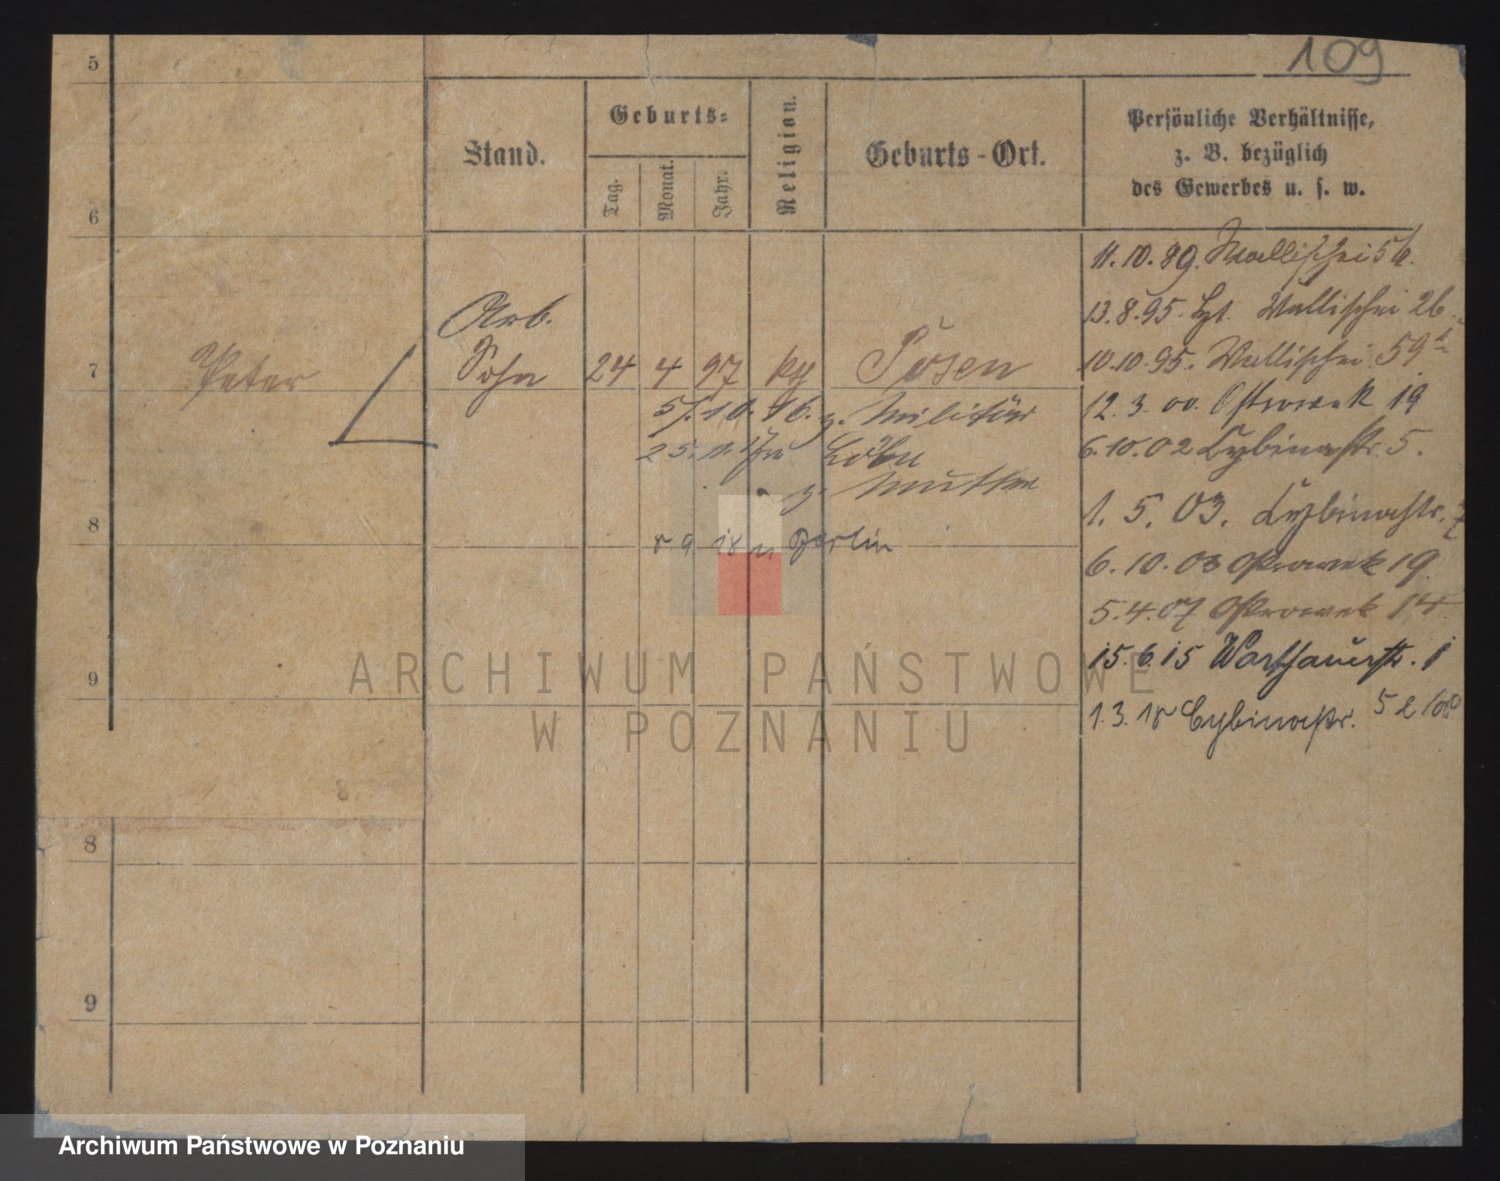 109
5
6
7
8
9
8
9
Stand.
Geburts-
Tag.
Monat.
Jahr.
Religion.
Geburts-Ort.
Persönliche Verhältnisse,
z. B. bezüglich
des Gewerbes u. s. w.
Peter
Arb.
Sohn 24 4 97 Posen
z. Militär
z. Mutter
8 9 18 n Berlin
11.10.89. Wallischei
13.8.95. Wallischei 26
10.10.95. Wallischei 59
12.3.00. Ostrowek 19
6.10.02 Cybinastr. 5.
1.5.03. Cybinastr.
6.10.03 Ostrowek 19
5.4.07 Ostrowek
15.6.15 Warschauerstr. 1
1.3.18 Cybinastr. 5
ARCHIWUM PAŃSTWOWE
W POZNANIU
Archiwum Państwowe w Poznaniu